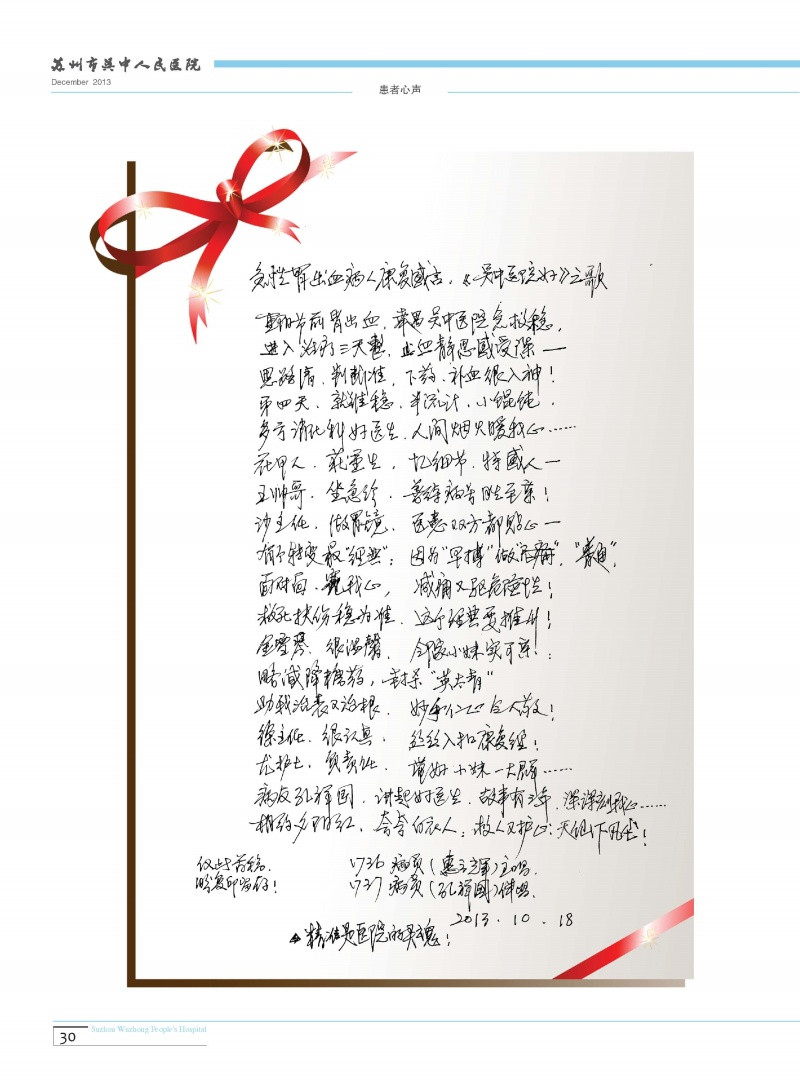 苏州市吴中人民医院
December 2013
患者心声
急性胃出血病人康复感言,《吴中医院好》之歌
重阳节前胃出血,幸遇吴中医院急救稳,
进入治疗三天整,止血静思感受深一
思路清.判断准,下药.补血很入神!
第四天.就维稳.半流汁.小馄饨.
多亏消化科好医生.人间烟火暖我心……
花甲人.获重生,忆细节.特感人一
王帅哥.坐急诊.善待病员胜至亲!
沙主任.做胃镜.医患双方都贴心一
有个转变最"经典":因为"早搏"做"无痛",
面对面.我心,减痛又驱危险性!
救死扶伤稳为准.这个经典要推升!
金雪琴.很温馨.邻家小妹实可亲!:
略减降糖药,"英太青"
助我治表又治根.妙手仁心令人敬!
徐主任.很认真.丝丝入扣康复经!
尤护士.负责任.好小妹一大群……
病友孔祥国.讲起好医生.故事有.深深刻我心……
相约夕阳红,白衣人:救人又护心:天使下凡尘!
仅此芳稿.
盼复印留存!
1736病员(惠立辉)主唱.
1737病员(孔祥国)伴唱.
2013.10.18
精准是医院的灵魂!
30
Suzhou Wuzhong People's Hospital